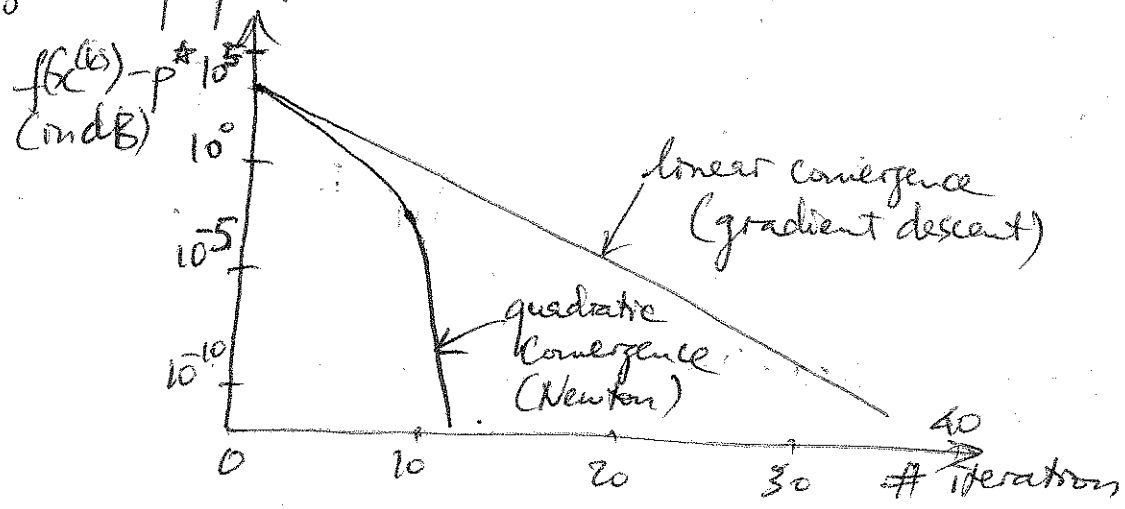 f(x^{(k)}) - p^★
(in dB)
10^5
10^0
10^{-5}
10^{-10}
linear convergence
(gradient descent)
quadratic
convergence
(Newton)
0
10
20
30
40
# iteration